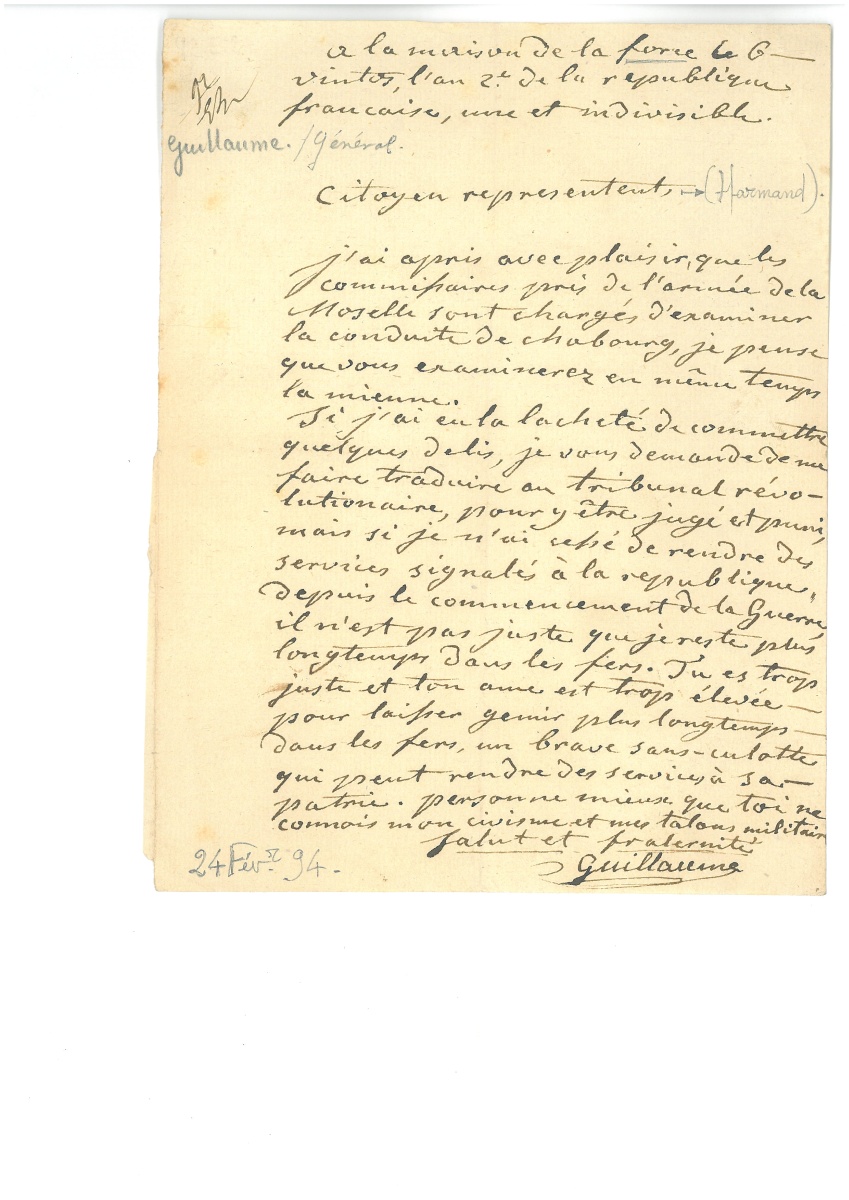 a la maison de la force le 6
vintos, l'an 2.e de la republique
francaise, une et indivisible.
Guillaume. / Général.
Citoyen representent, → (Harmand).
j'ai apris avec plaisir, que les
commissaires pris de l'armée de la
Moselle sont chargés d'examiner
la conduite de chabourg, je pense
que vous examinerez en même temps
la mienne.
Si j'ai eu la lacheté de commettre
quelques delis, je vous demande de me
faire traduire au tribunal révo-
lutionaire, pour y être jugé et puni,
mais si je n'ai cessé de rendre des
services signalés à la republique,
depuis le commencement de la Guerre,
il n'est pas juste que je reste plus
longtemps dans les fers. Tu es trop
juste et ton ame est trop élevée
pour laisser gemir plus longtemps
dans les fers, un brave sans-culotte
qui peut rendre des services à sa
patrie. personne mieux que toi ne
connois mon civisme et mes talans militair
Salut et fraternité
Guillaume
24 Févr. 94.